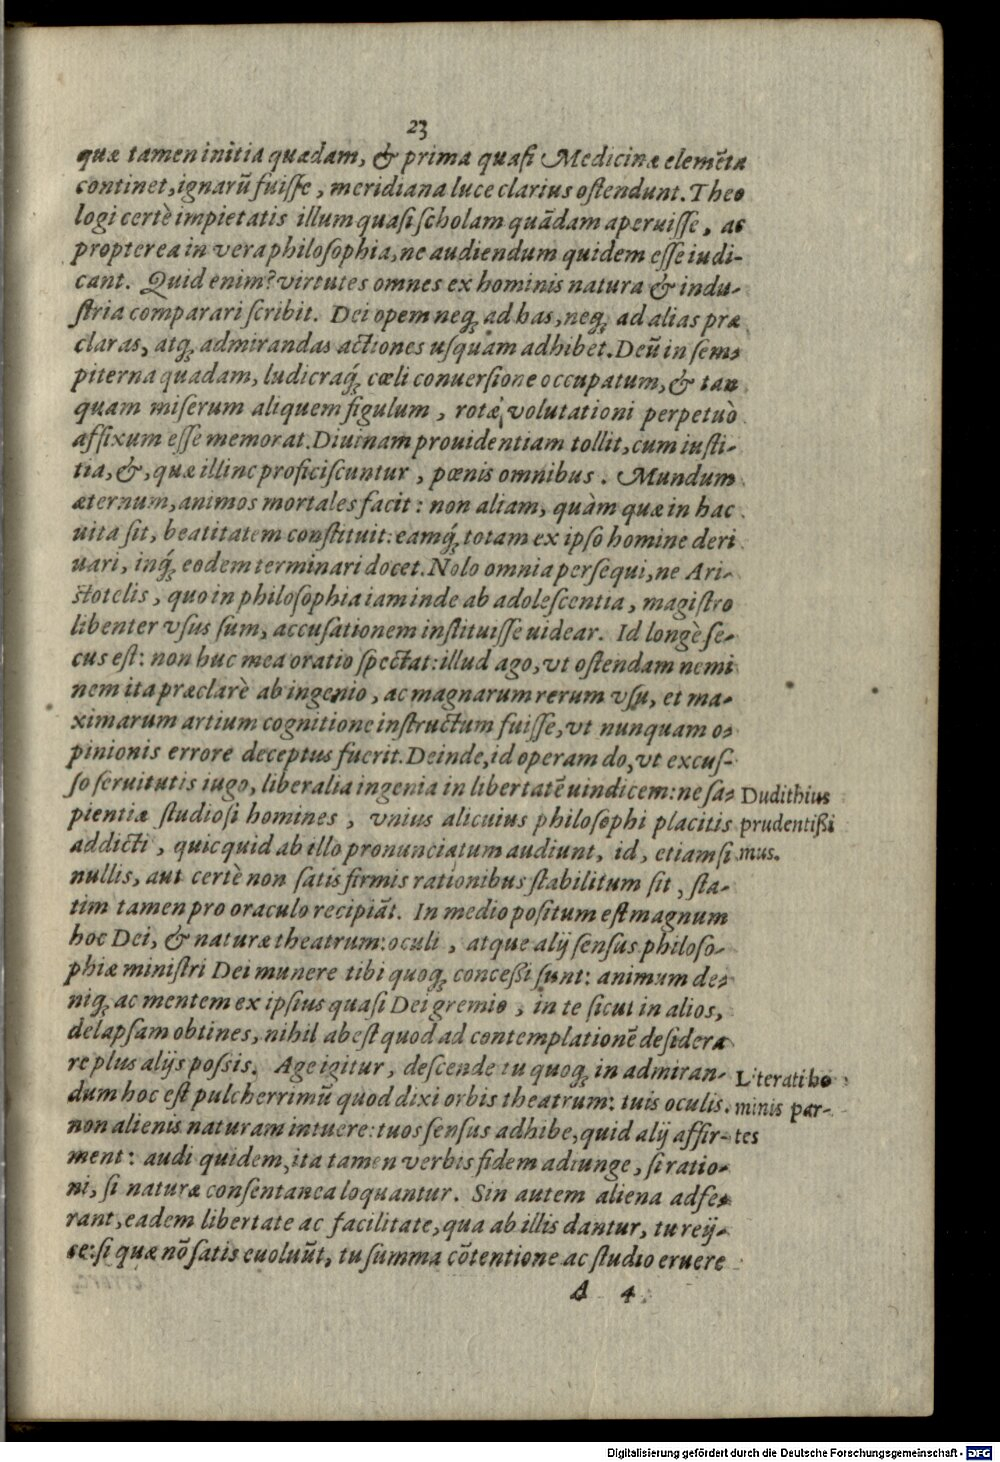 23
quæ tamen initia quædam, & prima quasi Medicinæ elemẽta
continet, ignarũ fuisse, meridiana luce clarius ostendunt. Theo
logi certè impietatis illum quasi scholam quãdam aperuisse, ac
propterea in vera philosophia, ne audiendum quidem esse iudi-
cant. Quid enim? virtutes omnes ex hominis natura & indu-
stria comparari scribit. Dei opem neq; ad has, neq; ad alias præ
claras, atq; admirandas actiones usquam adhibet. Deũ in sem-
piterna quadam, ludicraq́; cœli conuersione occupatum, & tan
quam miserum aliquem figulum, rotæ volutationi perpetuò
affixum esse memorat. Diuinam prouidentiam tollit, cum iusti-
tia, &, quæ illinc proficiscuntur, pœnis omnibus. Mundum
æternum, animos mortales facit: non aliam, quàm quæ in hac
uita sit, beatitatem constituit: eamq́; totam ex ipso homine deri
uari, inq́; eodem terminari docet. Nolo omnia persequi, ne Ari-
stotelis, quo in philosophia iam inde ab adolescentia, magistro
libenter vsus sum, accusationem instituisse uidear. Id longè se-
cus est: non huc mea oratio spectat: illud ago, vt ostendam nemi
nem ita præclarè ab ingenio, ac magnarum rerum vsu, et ma-
ximarum artium cognitione instructum fuisse, vt nunquam o-
pinionis errore deceptus fuerit. Deinde, id operam do, vt excus-
so seruitutis iugo, liberalia ingenia in libertatẽ uindicem: ne sa-
pientiæ studiosi homines, vnius alicuius philosophi placitis
addicti, quicquid ab illo pronunciatum audiunt, id, etiamsi
nullis, aut certè non satis firmis rationibus stabilitum sit, sta-
tim tamen pro oraculo recipiãt. In medio positum est magnum
hoc Dei, & naturæ theatrum: oculi, atque alij sensus philoso-
phiæ ministri Dei munere tibi quoq; concessi sunt: animum de-
niq; ac mentem ex ipsius quasi Dei gremio, in te sicut in alios,
delapsam obtines, nihil abest quod ad contemplationẽ desidera
re plus alijs possis. Age igitur, descende tu quoq; in admiran-
dum hoc est pulcherrimũ quod dixi orbis theatrum: tuis oculis.
non alienis naturam intuere: tuos sensus adhibe, quid alij affir-
ment: audi quidem, ita tamen verbis fidem adiunge, si ratio-
ni, si naturæ consentanea loquantur. Sin autem aliena adfe-
rant, eadem libertate ac facilitate, qua ab illis dantur, tu reij-
ce: si quæ nõ satis euoluũt, tu summa cõtentione ac studio eruere
A 4
Dudithius
prudentißi
mus.
Literati ho
minis par-
tes
Digitalisierung gefördert durch die Deutsche Forschungsgemeinschaft - DFG